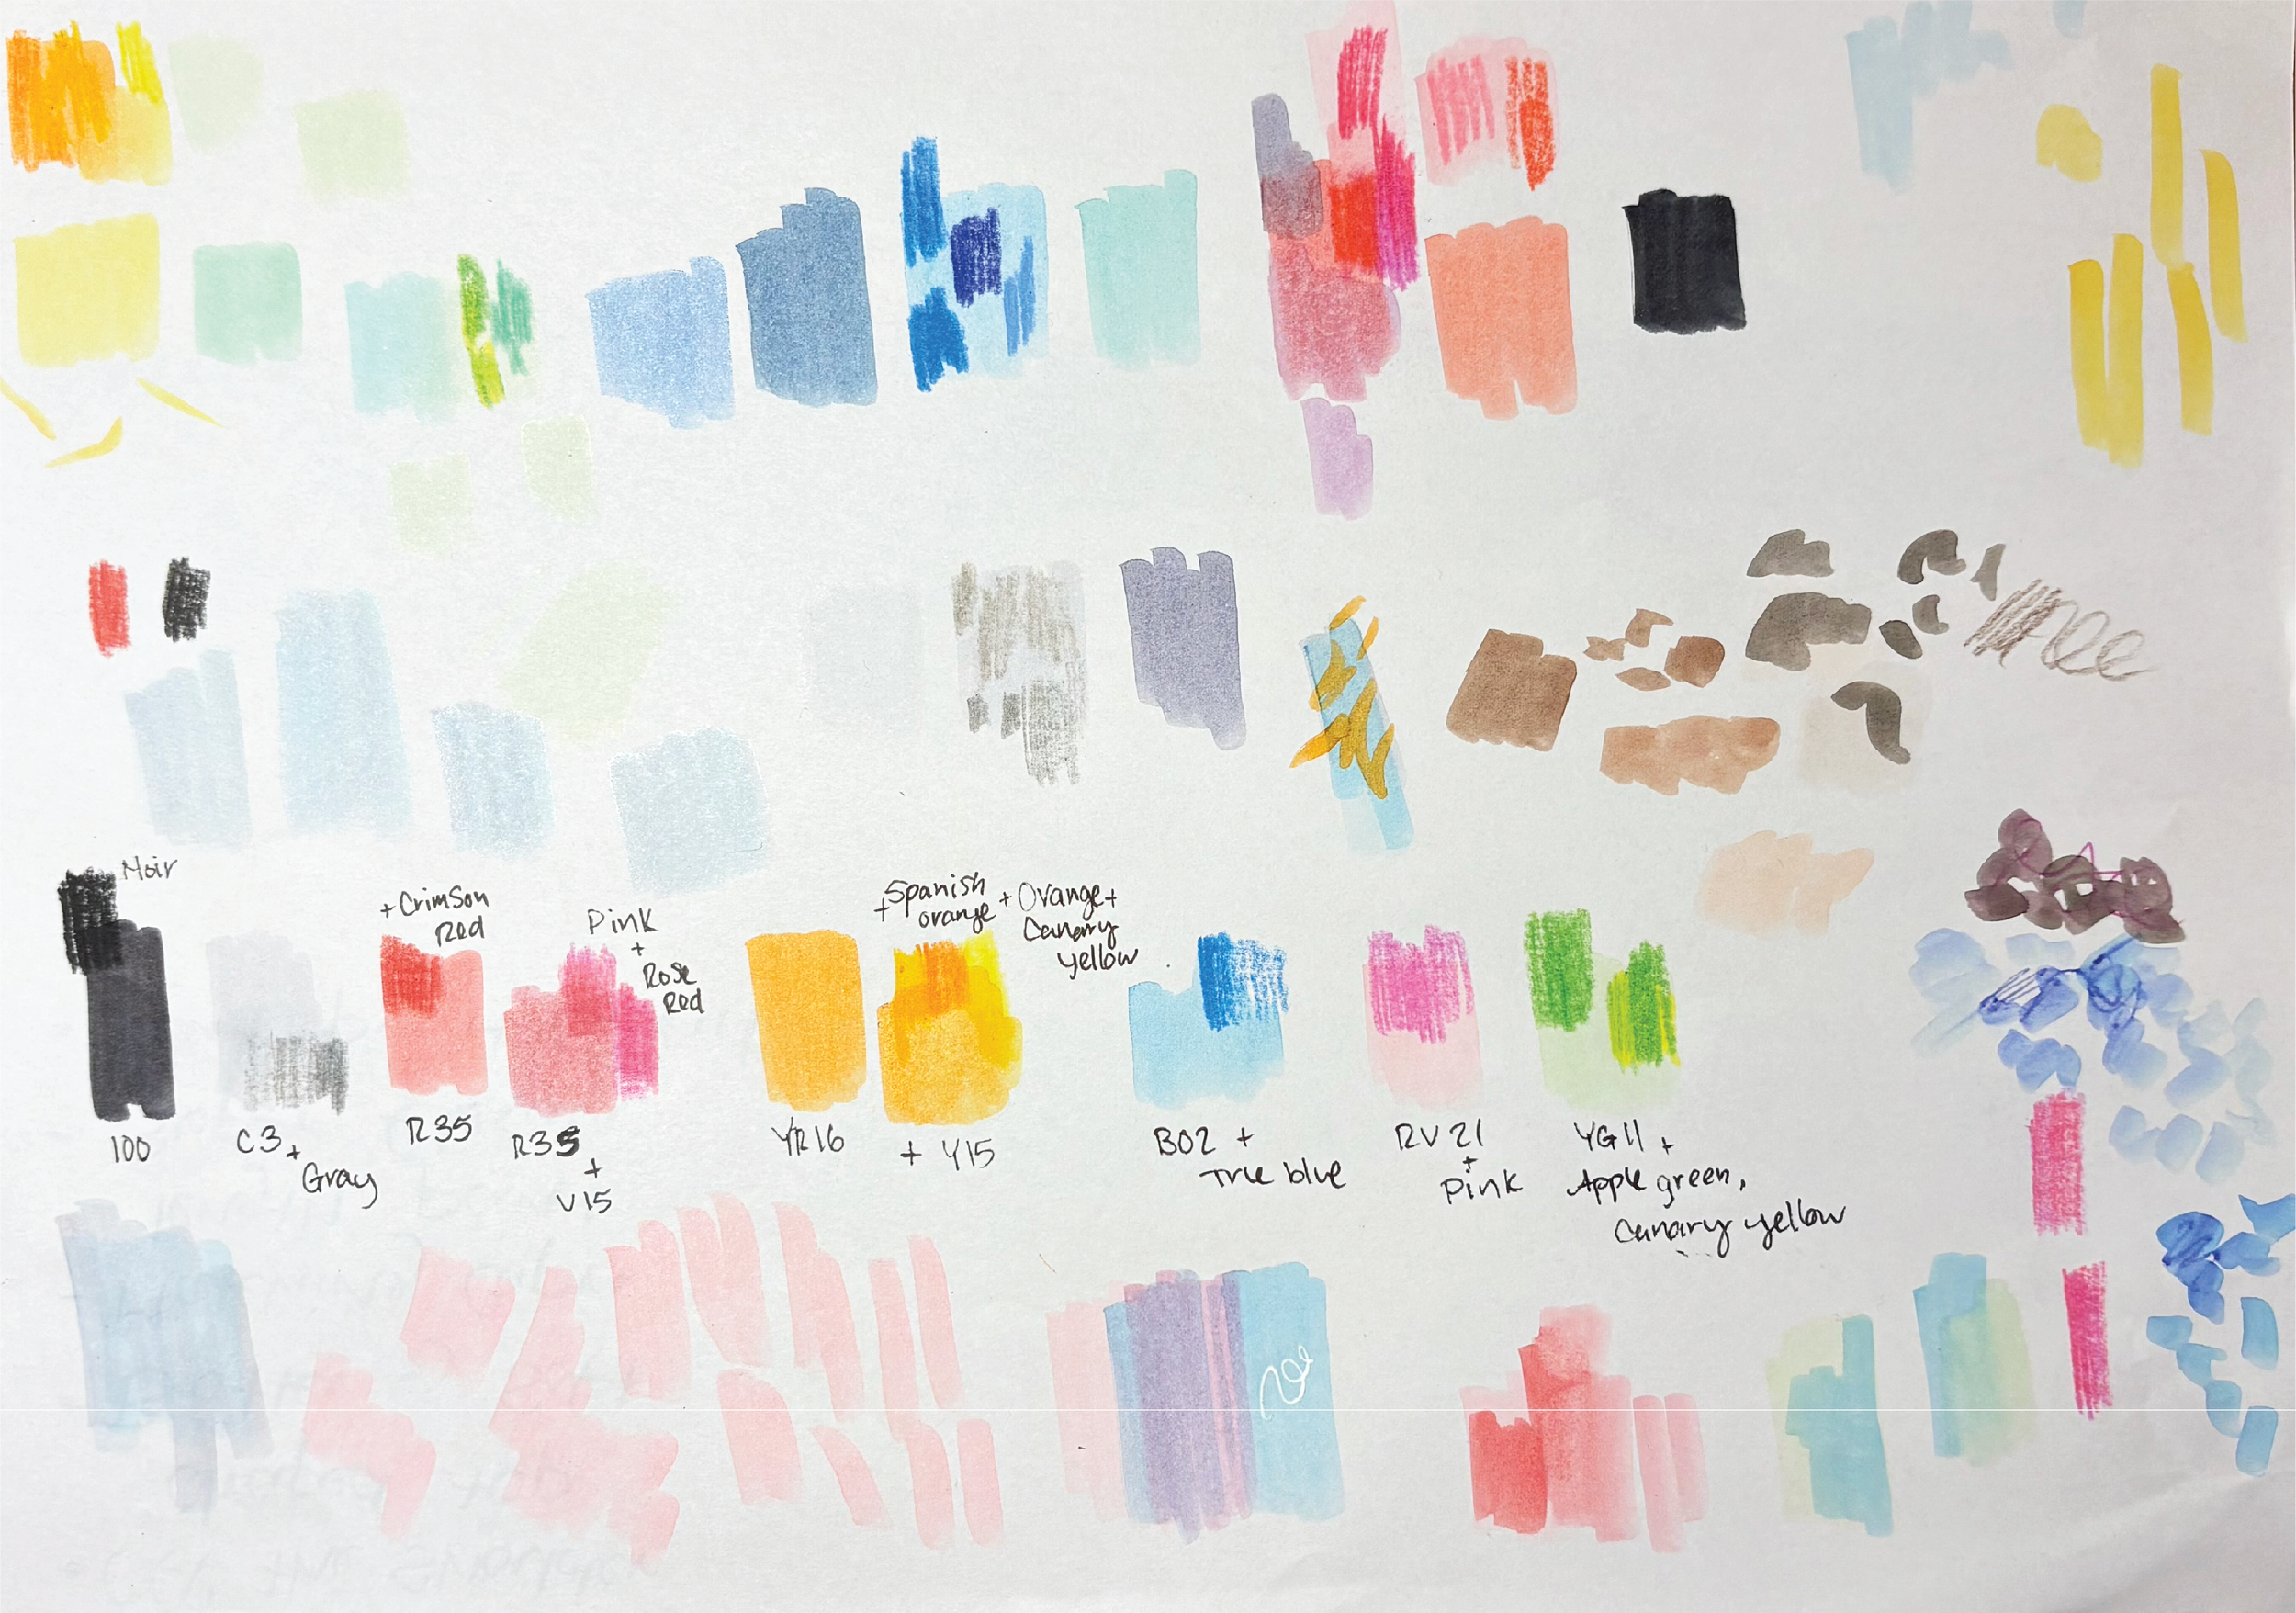 Noir
+ Crimson
Red
Pink
+
Rose
Red
+ Spanish
orange
+ Orange +
Canary
yellow
100
C3 +
Gray
R35
R35
+
V15
YR16
+ Y15
B02 +
True blue
RV21
+
Pink
YG11 +
Apple green,
Canary yellow